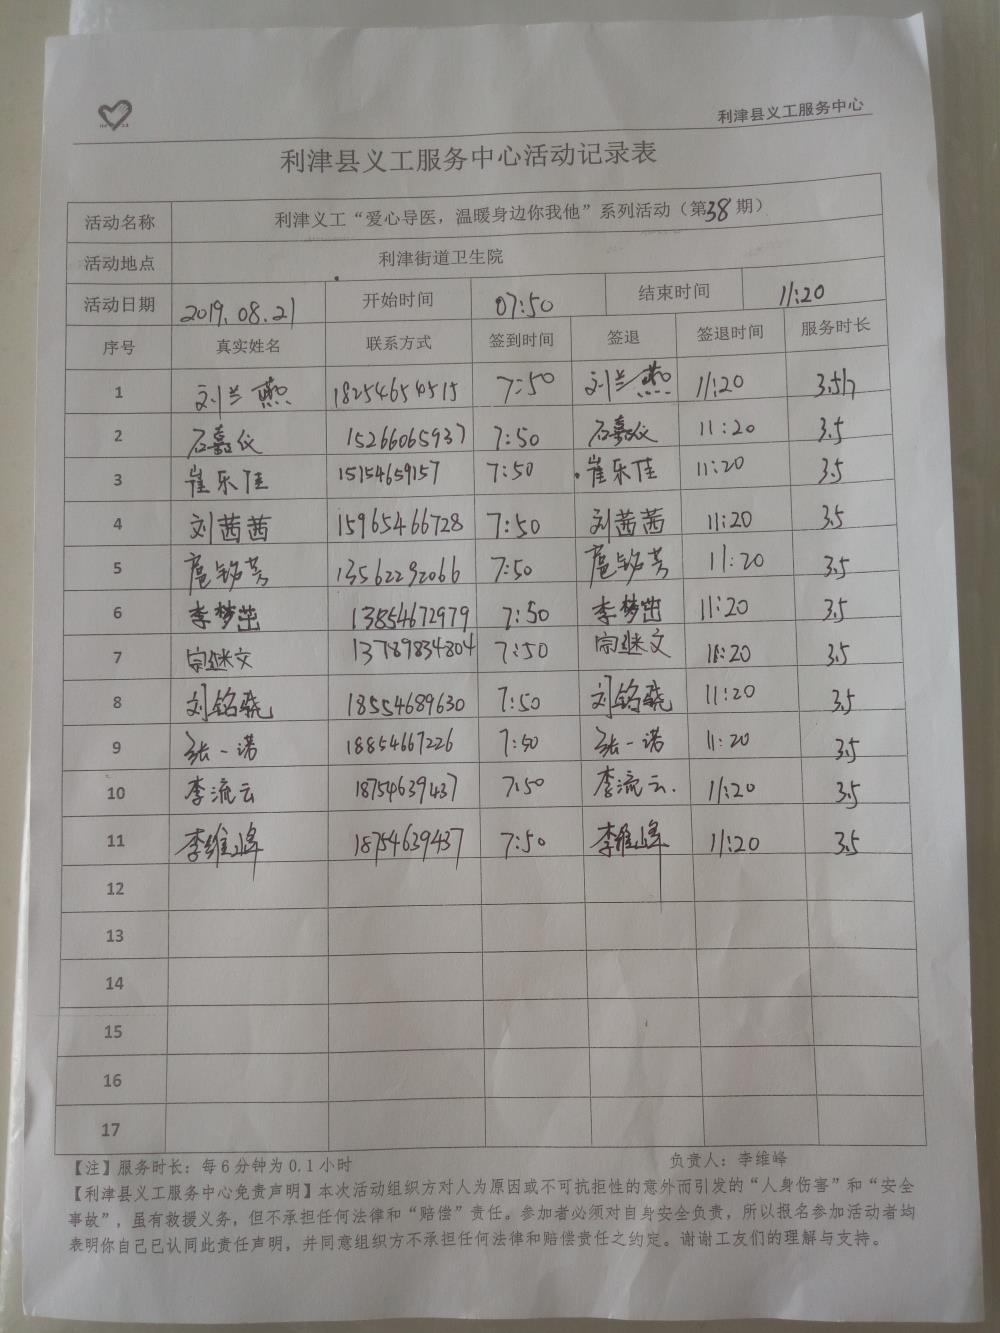 利津县义工服务中心
利津县义工服务中心活动记录表
活动名称 利津义工“爱心导医，温暖身边你我他”系列活动（第38期）
活动地点 利津街道卫生院
活动日期 2019.08.21 开始时间 07:50 结束时间 11:20
序号 真实姓名 联系方式 签到时间 签退 签退时间 服务时长
1 刘兰燕 18254654515 7:50 刘兰燕 11:20 3.5h
2 石嘉仪 15266065937 7:50 石嘉仪 11:20 3.5
3 崔乐佳 15154659157 7:50 崔乐佳 11:20 3.5
4 刘茜茜 15965466728 7:50 刘茜茜 11:20 3.5
5 扈铭芳 13562292066 7:50 扈铭芳 11:20 3.5
6 李梦茁 13854672979 7:50 李梦茁 11:20 3.5
7 宗继文 13789834804 7:50 宗继文 11:20 3.5
8 刘铭骁 18554689630 7:50 刘铭骁 11:20 3.5
9 张一诺 18854667226 7:50 张一诺 11:20 3.5
10 李流云 18754639437 7:50 李流云. 11:20 3.5
11 李维峰 18754639437 7:50 李维峰 11:20 3.5
12
13
14
15
16
17
【注】服务时长：每6分钟为0.1小时 负责人：李维峰
【利津县义工服务中心免责声明】本次活动组织方对人为原因或不可抗拒性的意外而引发的“人身伤害”和“安全
事故”，虽有救援义务，但不承担任何法律和“赔偿”责任。参加者必须对自身安全负责，所以报名参加活动者均
表明你自己已认同此责任声明，并同意组织方不承担任何法律和赔偿责任之约定。谢谢工友们的理解与支持。